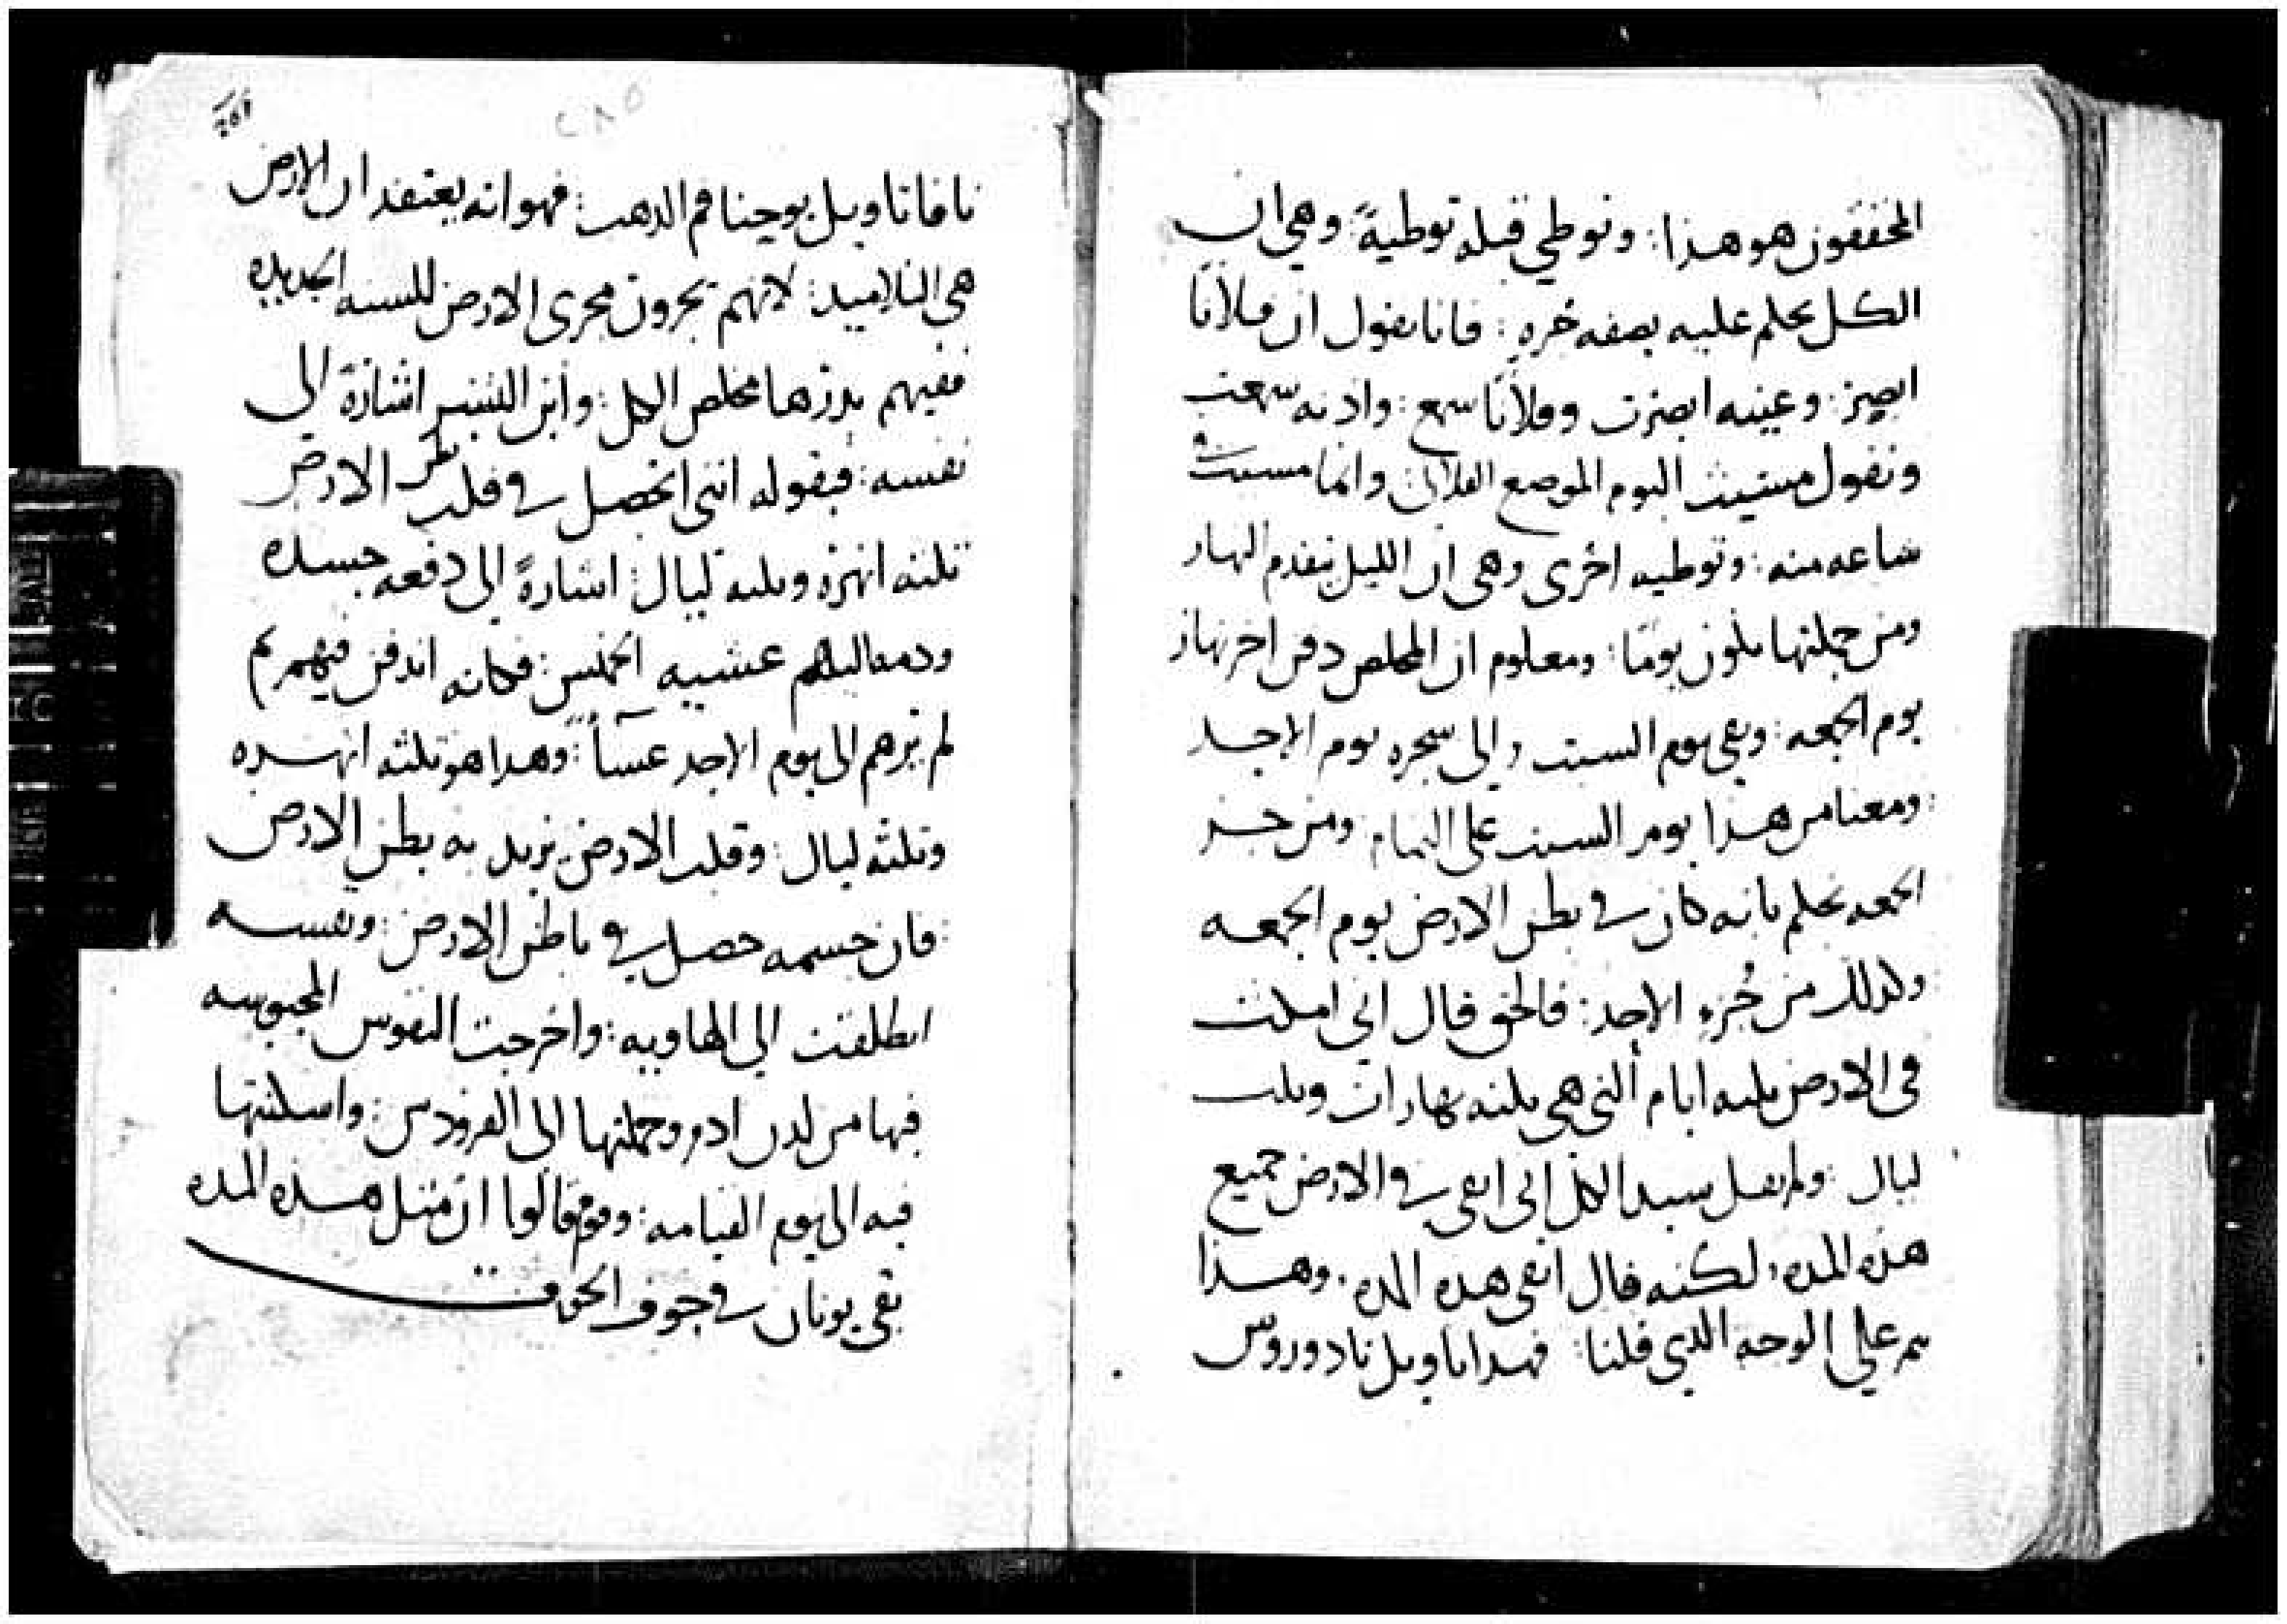 المحققون هو هذا: ونوطي قبله توطيةً: وهي ان
الكل يحكم عليه بصفه جزه: فانا نقول ان فلانًا
ابصر: وعينه ابصرت وفلانًا سمع: واذنه سمعت
ونقول مشيت اليوم الموضع الفلاني وانما مشيت
ساعه منه: وتوطيه اخرى وهي ان الليل يتقدم النهار
ومن جملتها يكون يومًا: ومعلوم ان المخلص دفن اخر نهار
يوم الجمعه: وبقي يوم السبت والى سحره يوم الاحد
ومعنا من هذا يوم السبت على التمام: ومن جز
الجمعه نحكم بانه كان في بطن الارض يوم الجمعه
وكذلك من جُزءِ الاحد: فالحق قال اني امكث
في الارض ثلثه ايام التي هي ثلثه نهارات وثلث
ليال: ولم يقل سيدا الكل اني ابقى في الارض جميع
هذه المده: لكنه قال ابقى هذه المده. وهذا
تم على الوجه الذي قلنا: فهذا تاويل تادوروس
ناما تاويل يوحنا فم الدهب: فهو انه يعتقد ان الارض
هي التلاميد: لانهم يجرون مجرى الارض للسنه الجديده
ففيهم بدرها مخلص الكل: وابن البشر اشارة الى
نفسه: فبقوله انني احصل في قلب الارض
ثلثه انهره وثلثه ليال: اشارةً الى دفعه جسده
ودمه اليهم عشيه الخميس: فكانه اندفن فيهم ثم
لم يرهم الى يوم الاحد عشاً: وهذا هو ثلثه انهره
وثلثه ليال: وقلب الارض يريد به بطن الارض
فان جسمه حصل في باطن الارض: ونفسه
انطلقت الى الهاويه: واخرجت النفوس المحبوسه
فيها من لدن ادم وحملتها الى الفردوس: واسكنتها
فيه الى يوم القيامه: وقوم قالوا ان مثل هذه المده
بقي يونان في جوف الحوت